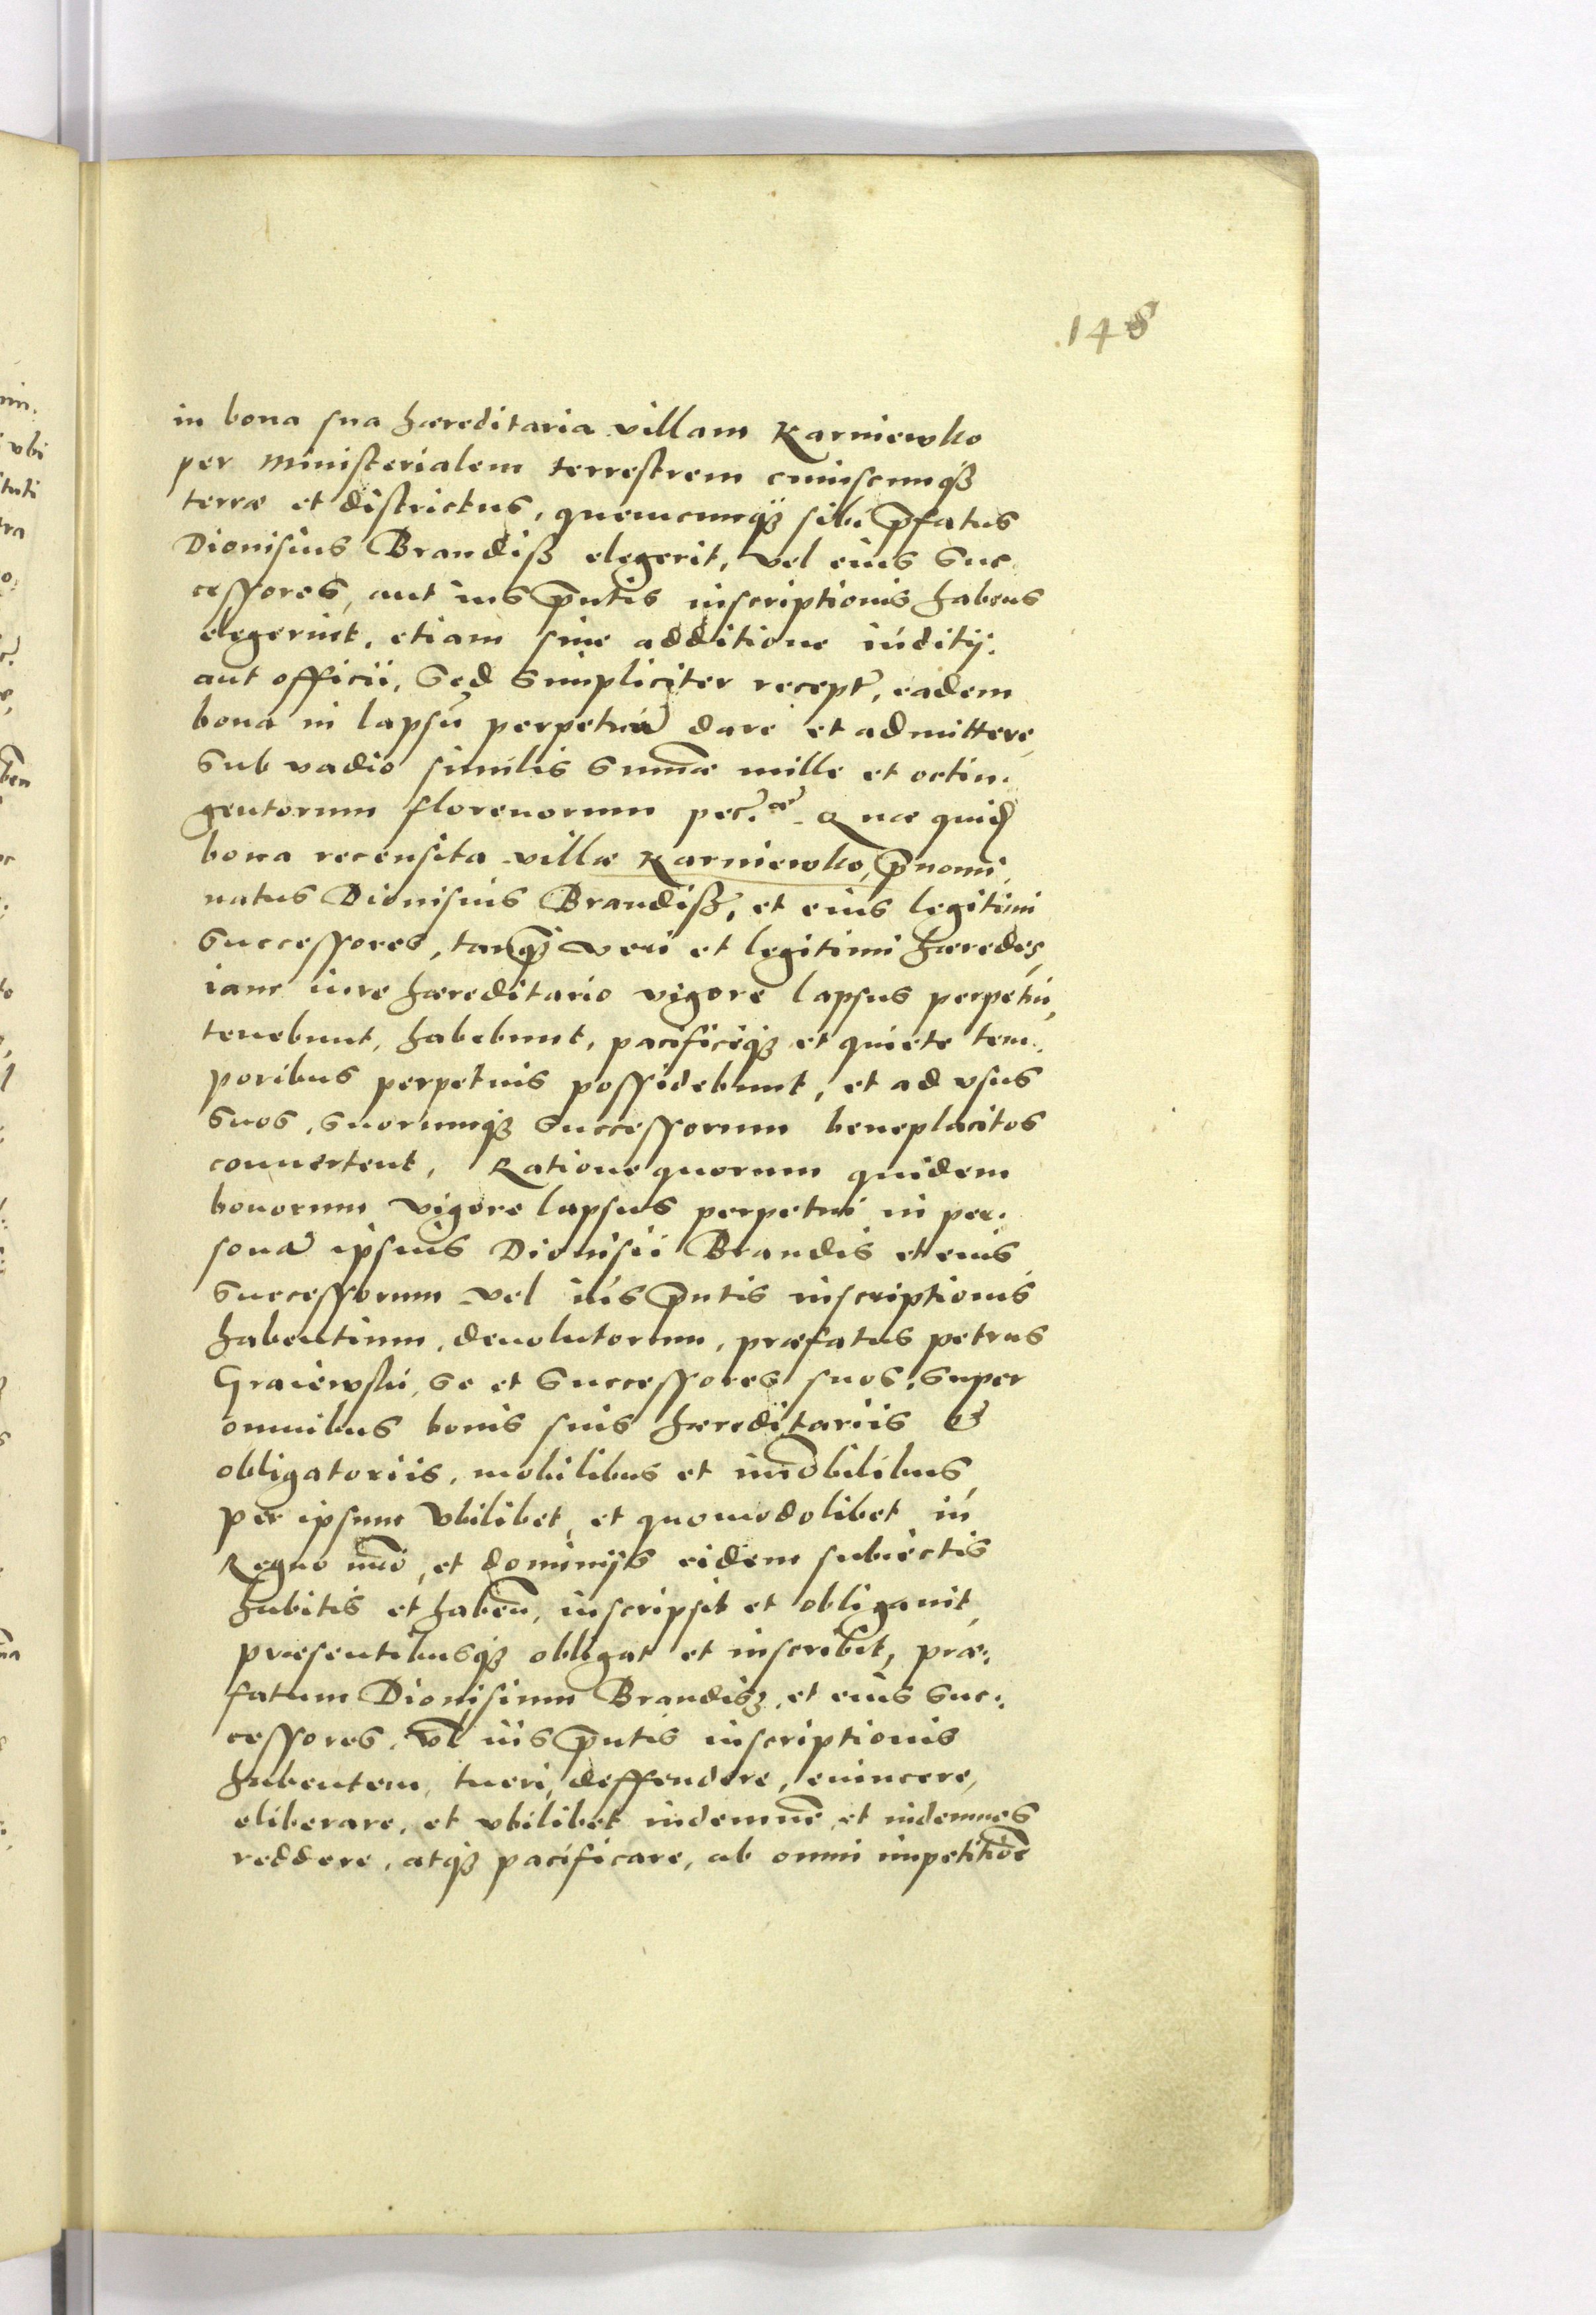 148
in bona sua hæreditaria villam Karniewko
per Ministerialem terrestrem cuiuscumq̃
terræ et districtus, quemcumq̃ sibi p̃fatus
Dionisius Brandiß elegerit, vel eius Suc
cessores, aut ius p̃ntis inscriptionis habens
elegerint, etiam sine additione iuditij.
aut officii, Sed Simpliciter recept̃, eadem
bona in lapsũ perpetuũ dare et admittere,
Sub vadio similis Summæ mille et octin.
gentorum florenorum pec.æ Quæ quid̃
bona recensita villæ Karniewko, p̃nomi,
natus Dionisius Brandiß, et eius legitimi
Successores, tanq̃ veri et legitimi hæredes,
iam iure hæreditario vigore lapsus perpetui,
tenebunt, habebunt, pacificeq̃ et quiete tem.
poribus perpetuis possidebunt, et ad vsus
Suos, Suorumq̃ Successorum beneplacitos
conuertent, Ratione quorum quidem
bonorum vigore lapsus perpetui in per.
sonã ipsius Dionisii Brandis et eius
Successorum vel ius p̃ntis inscriptionis
habentium, deuolutorum, præfatus petrus
Graiewski, Se et Successores suos, Super
omnibus bonis suis hæreditariis et
obligatoriis, mobilibus et im̃obilibus,
per ipsum vbilibet, et quomodolibet in
Regno nr̃o, et dominijs eidem subiectis
habitis et haben̄, inscripsit et obligauit,
præsentibusq̃ obligat et inscribit, præ:
fatum Dionisium Brandisz, et eius Suc:
cessores, vl̃ ius p̃ntis inscriptionis
habentem, tueri, deffendere, euincere,
eliberare, et vbilibet indemnẽ, et indemnes
reddere, atq̃ pacificare, ab omni impetitiõe